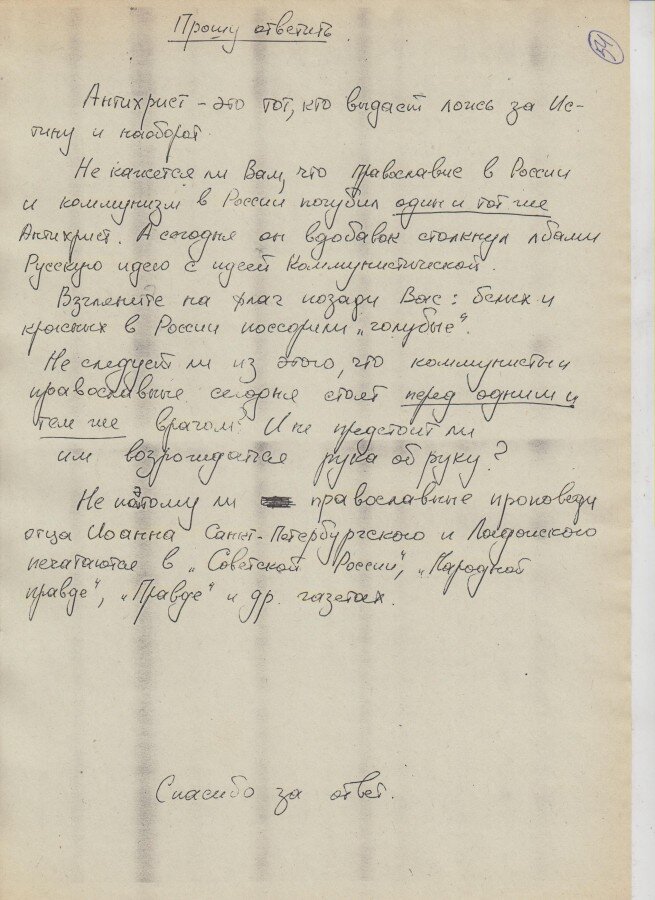 Прошу ответить
54
Антихрист – это тот, кто выдаёт ложь за Ис-
тину и наоборот.
Не кажется ли Вам, что Православие в России
и коммунизм в России погубил один и тот же
Антихрист. А сегодня он вдобавок столкнул лбами
Русскую идею с идеей Коммунистической.
Взгляните на флаг позади Вас: белых и
красных в России поссорили „голубые“.
Не следует ли из этого, что коммунисты и
православные сегодня стоят перед одним и
тем же врагом? И не предстоит ли
им возрождаться рука об руку?
Не поэтому ли православные проповеди
отца Иоанна Санкт-Петербургского и Ладожского
печатаются в „Советской России“, „Народной
правде“, „Правде“ и др. газетах.
Спасибо за ответ.